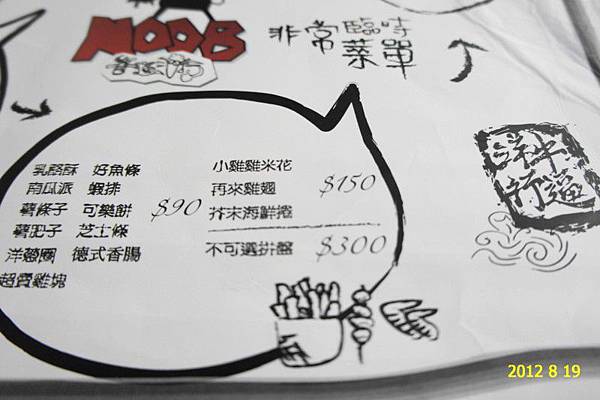 非常臨時
菜單
乳酪酥 好魚條
南瓜派 蝦排
薯條子 可樂餅 $90
薯肥子 芝士條
洋蔥圈 德式香腸
超賣雞塊
小雞雞米花
再來雞翅 $150
芥末海鮮捲
不可選拼盤 $300
2012 8 19